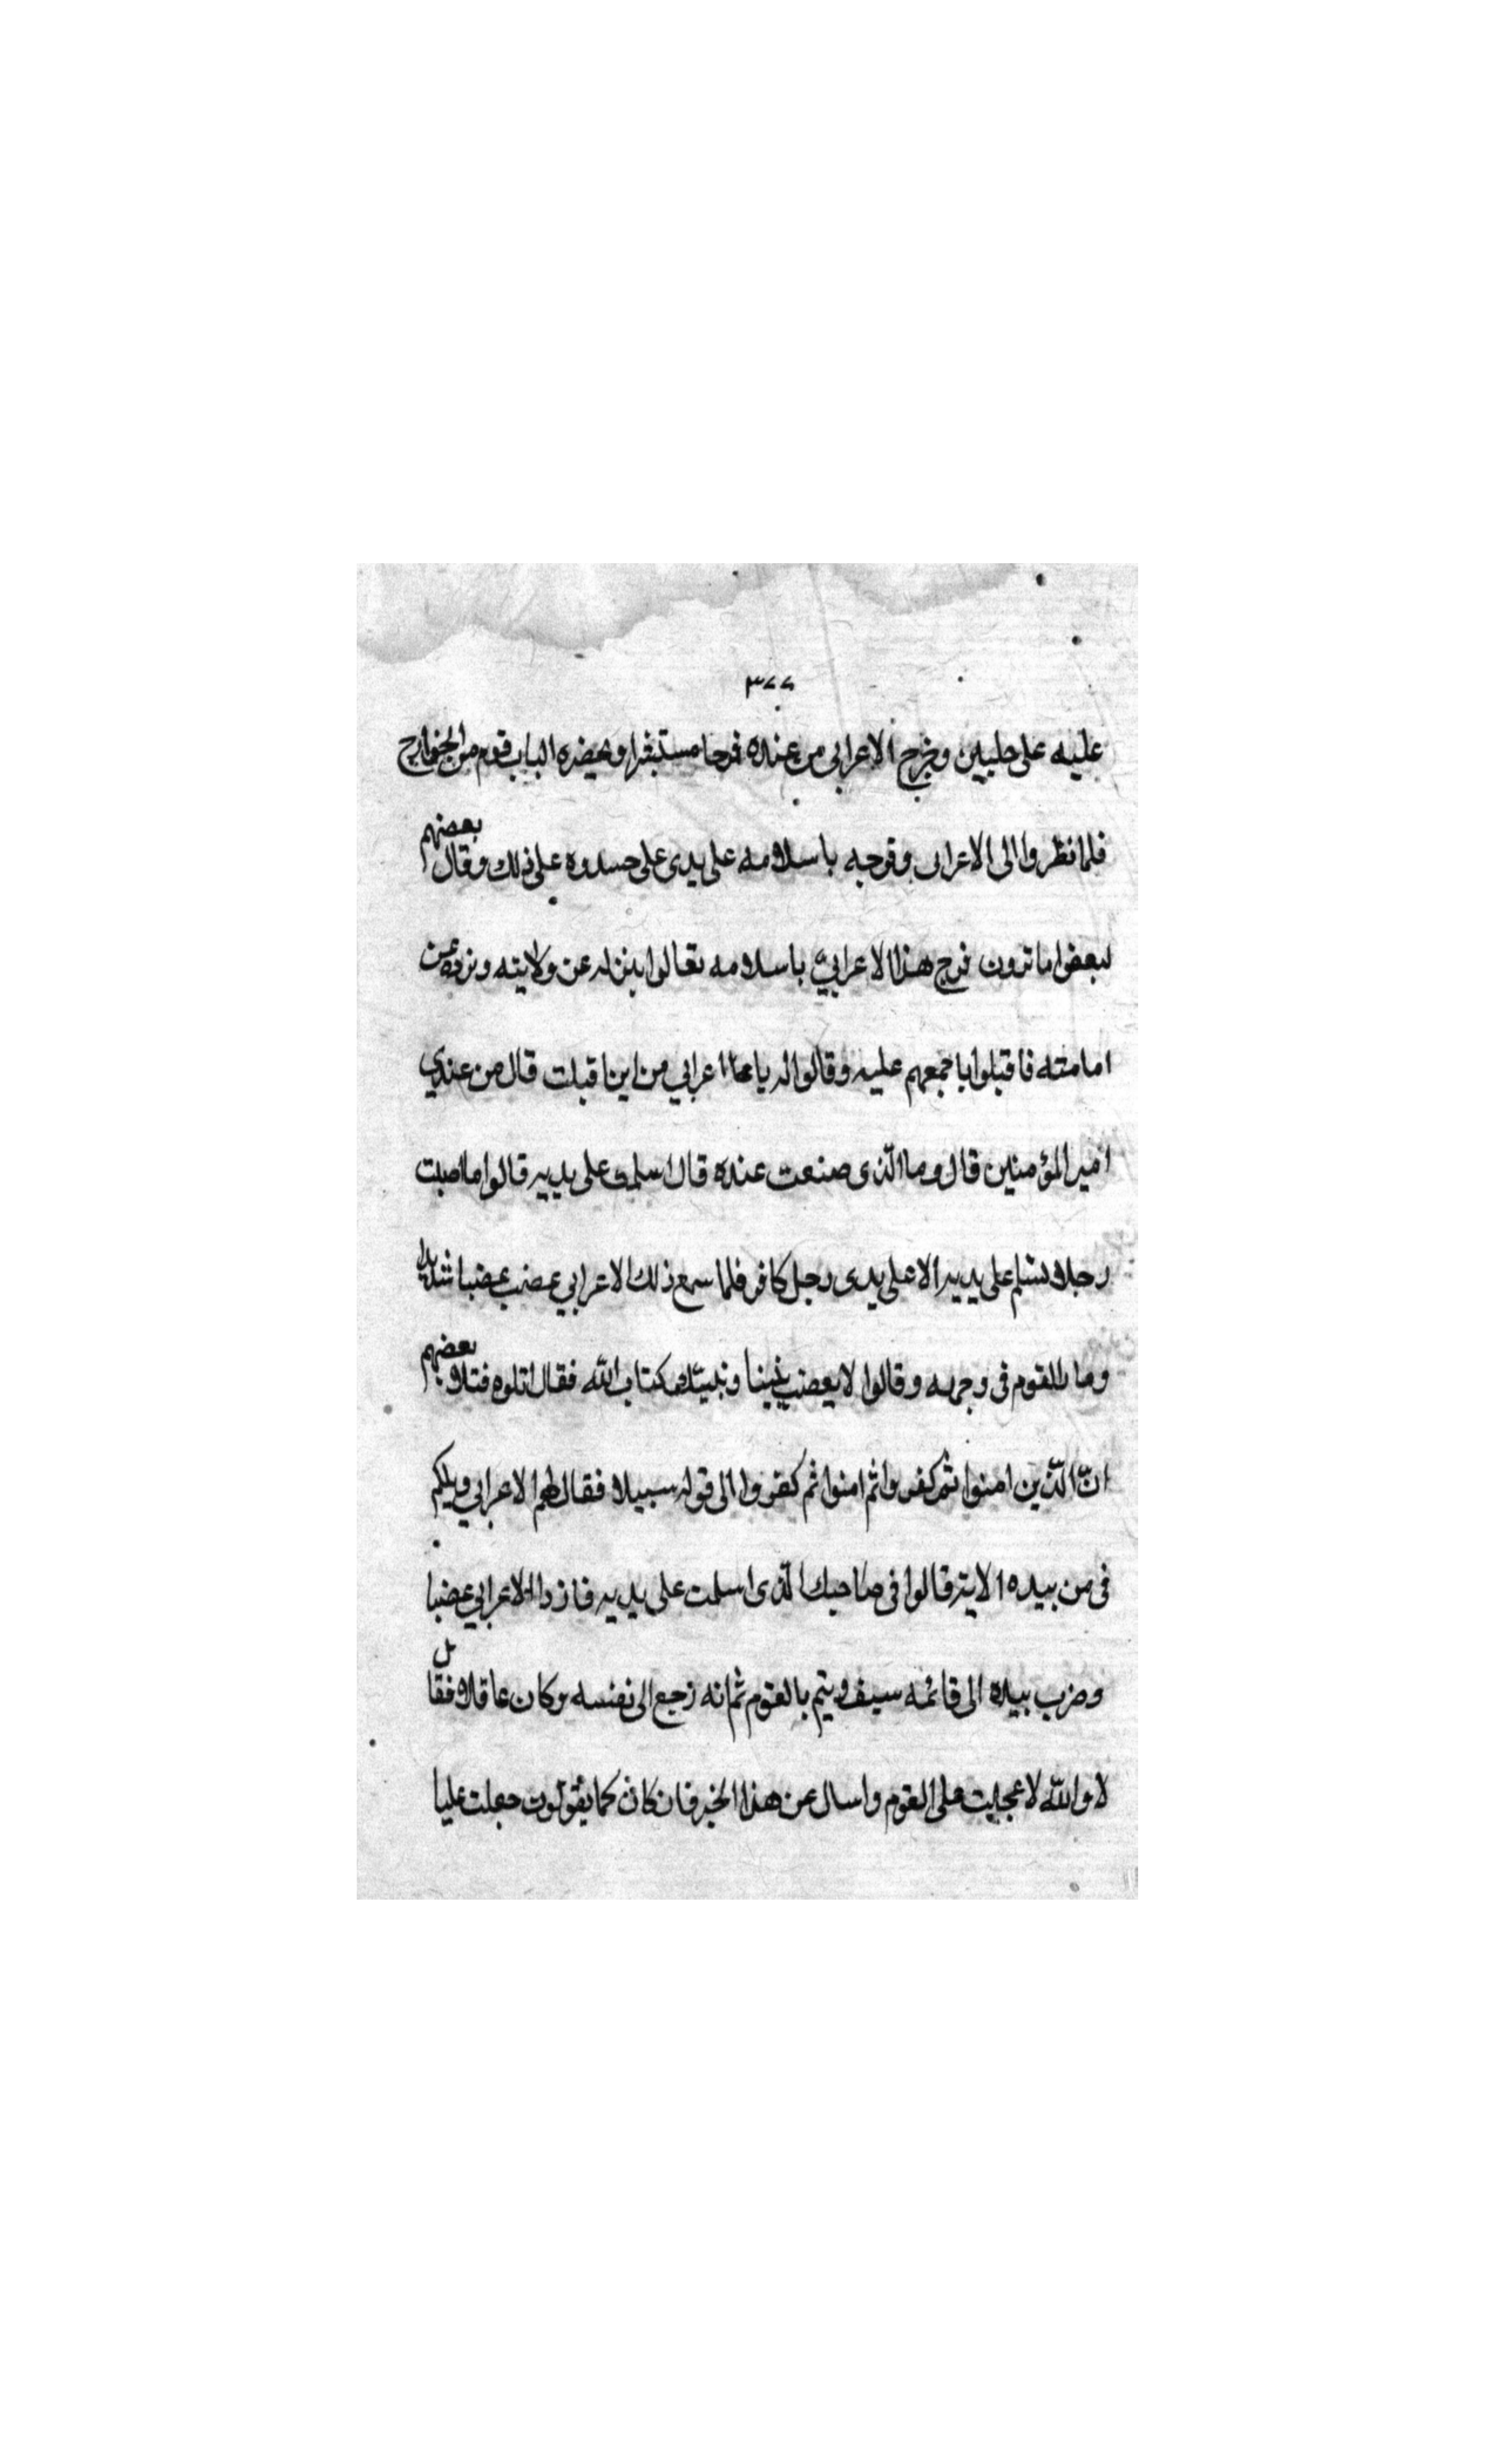 ٣٧٧
عليه على حلبين وخرج الاعرابى من عنده فرحا مستبشرا وبحضره الباب قوم من الخوارج
فلما نظروا الى الاعرابى وفرحه باسلامه على يدى على حسدوه على ذلك وقال بعضهم
لبعض اما ترون فرح هذا الاعرابي باسلامه تعالوا ننزله عن ولايته ونرده عن
امامته فاقبلوا باجمعهم عليه وقالوا له يا اعرابي من اين اقبلت قال من عندي
امير المؤمنين قال وما الذى صنعت عنده قال اسلمت على يديه قالوا ما اصبت
رجلا تسلم على يديه الا على يدى رجل كافر فلما سمع ذلك الاعرابي غضب غضبا شديدا
وما ر القوم فى وجهه وقالوا لا تغضب بيننا وبينك كتاب الله فقال اتلوه فتلا بعضهم
انّ الّذين امنوا ثم كفروا ثم امنوا ثم كفروا الى قوله سبيلا فقال لهم الاعرابي ويلكم
فى من بيده الاية قالوا فى صاحبك الذى اسلمت على يديه فازداد الاعرابي غضبا
وضرب بيده الى قائمه سيفه بالقوم ثم انه رجع الى نفسه وكان عاقلا فقال
لا والله لا عجلت على القوم واسال عن هذا الخبر فان كان كما يقولون حعلت عليا